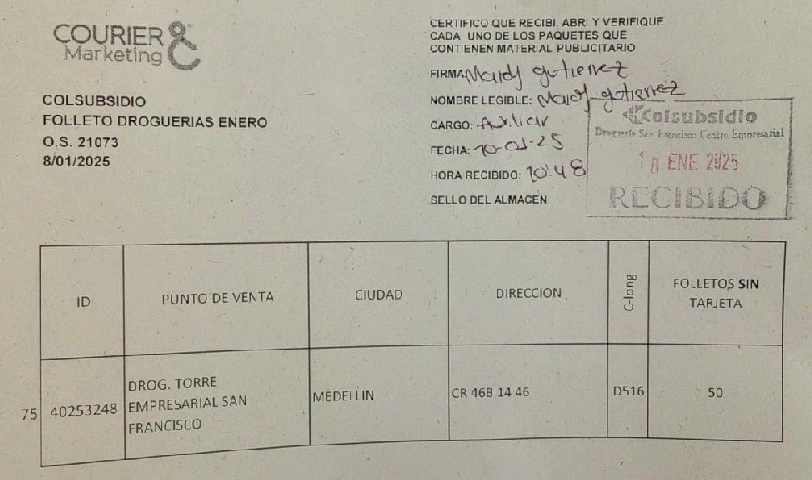 COURIER &
Marketing
COLSUBSIDIO
FOLLETO DROGUERIAS ENERO
O.S. 21073
8/01/2025
CERTIFICO QUE RECIBI, ABRI Y VERIFIQUE
CADA UNO DE LOS PAQUETES QUE
CONTIENEN MATERIAL PUBLICITARIO
FIRMA: Maidy gutierrez
NOMBRE LEGIBLE: Maidy gutierrez
CARGO: Auxiliar
FECHA: 10-01-25
HORA RECIBIDO: 10:48
SELLO DEL ALMACEN
Colsubsidio
Droguería San Francisco Centro Empresarial
ENE 2025
RECIBIDO
ID PUNTO DE VENTA CIUDAD DIRECCION C-long FOLLETOS SIN TARJETA
75 40253248 DROG. TORRE EMPRESARIAL SAN FRANCISCO MEDELLIN CR 46B 14 46 D516 50